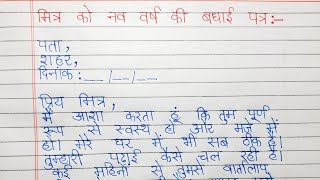 मित्र को नव वर्ष की बधाई पत्र:-
पता,
शहर,
दिनांक:__/__/__
प्रिय मित्र,
मैं आशा करता हूं कि तुम पूर्ण
रूप से स्वस्थ हो और मजे में
हो। मेरे घर में भी सब ठीक है।
तुम्हारी पढ़ाई कैसे चल रही है।
कई महिनों से तुमसे वार्तालाप